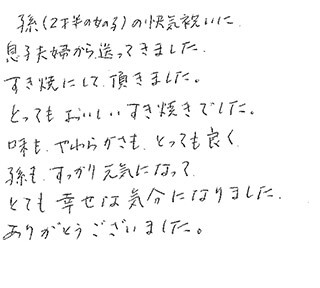 孫(2才半の女の子)の快気祝いに
息子夫婦から送ってきました。
すき焼にして頂きました。
とってもおいしいすき焼きでした。
味も、やわらかさも、とっても良く
孫も、すっかり元気になって
とても幸せな気分になりました。
ありがとうございました。